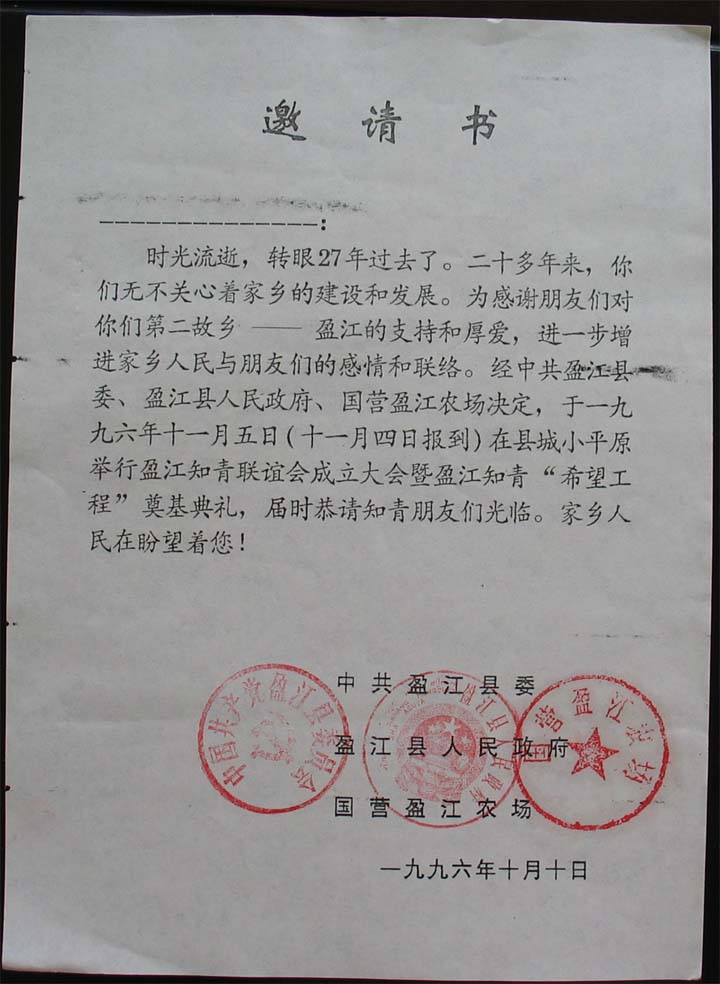 邀请书
_______________:
时光流逝，转眼27年过去了。二十多年来，你
们无不关心着家乡的建设和发展。为感谢朋友们对
你们第二故乡 —— 盈江的支持和厚爱，进一步增
进家乡人民与朋友们的感情和联络。经中共盈江县
委、盈江县人民政府、国营盈江农场决定，于一九
九六年十一月五日(十一月四日报到)在县城小平原
举行盈江知青联谊会成立大会暨盈江知青“希望工
程”奠基典礼，届时恭请知青朋友们光临。家乡人
民在盼望着您！
中共盈江县委
中国共产党盈江县委员会
盈江县人民政府
国营盈江农场
国营盈江农场
一九九六年十月十日